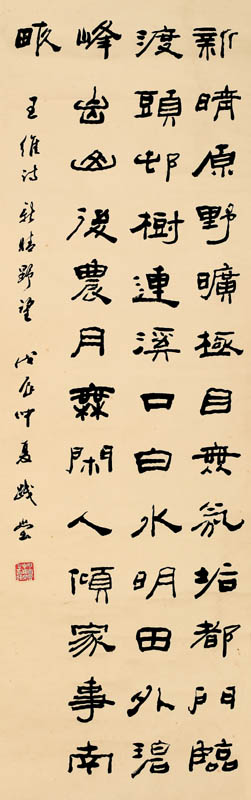 新晴原野曠極目無氛垢都門臨
渡頭邨樹連溪口白水明田外碧
峰出山後農月無閑人傾家事南
畝
王維詩新晴野望 戊辰仲夏 践堂